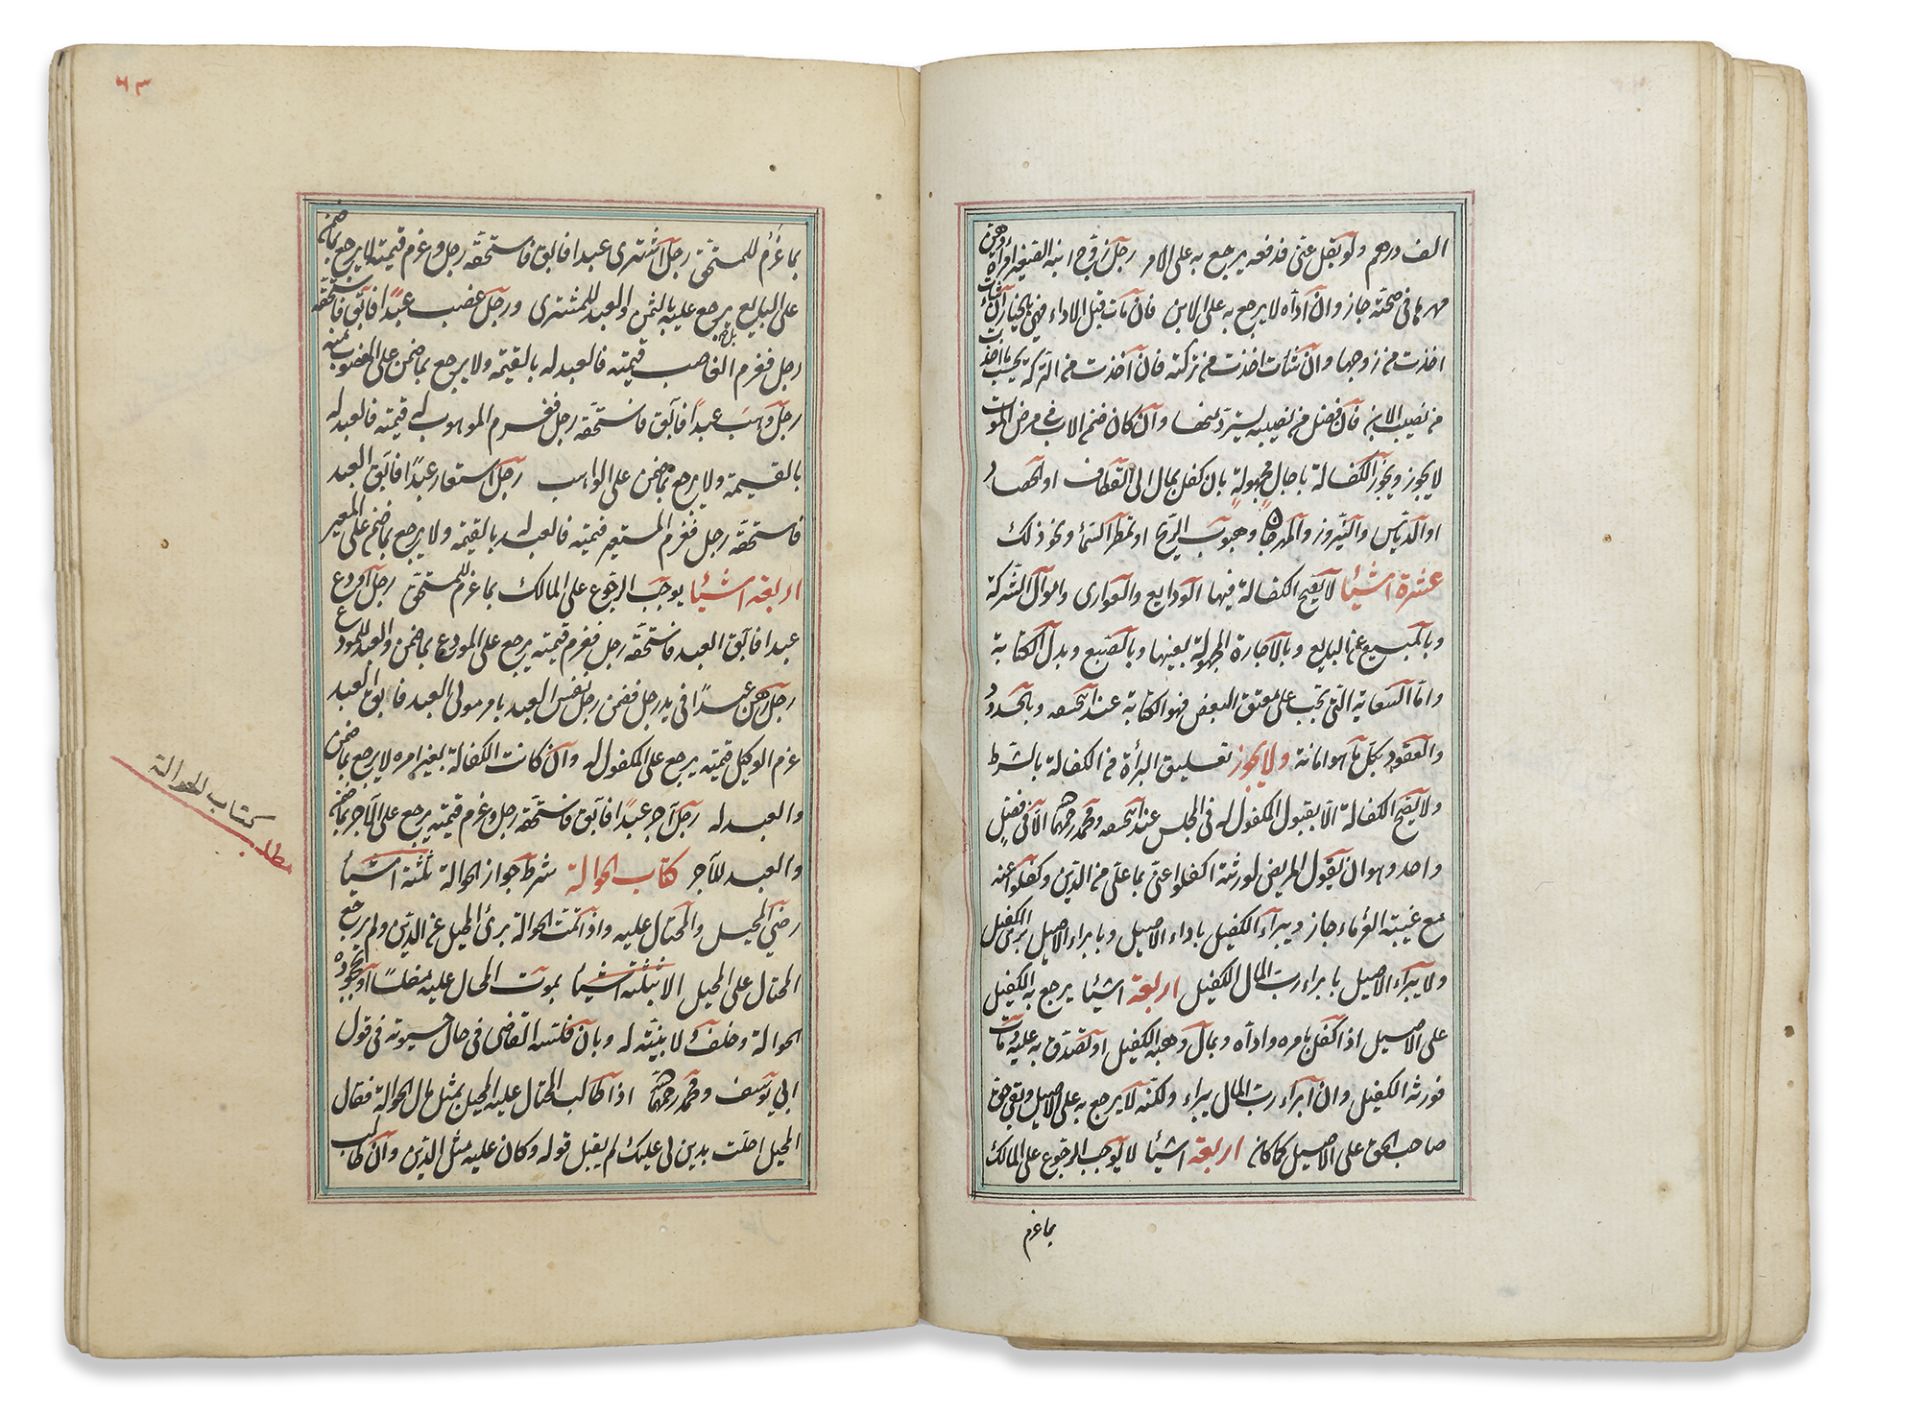 الف درهم ولو لم يقل عنى فدفعه يرجع به على الامر رجل زوج ابنه الصغير امراة وضمن
مهرها فى صحته جاز وان اداه لا يرجع به على الابن فان مات قبل الاداء فهى بالخيار ان شاءت
اخذت من زوجها وان شاءت اخذت من تركته فان اخذت من التركة يحسب ما اخذت
من نصيب الابن فان فضل من نصيبه يسترد منها وان كان ضمن الاب فى مرض الموت
لا يجوز ويجوز الكفالة باجال مجهولة بان كفل بمال الى القطاف او الحصاد
او الدياس والنيروز والمهرجان وهبوب الريح او تمطر السماء ونحو ذلك
عشرة اشيأ لا يصح الكفالة فيها الودايع والعوارى واموال الشركة
وبالمبيع عن البايع وبالاجارة بعينها وبدل الكتابة
واما السعاية التى تجب على معتق البعض فهو الكتابة عند ابيحنيفه وبالحدود
والعقود بكل ما هو امانة ولا يجوز تعليق البرأة من الكفالة بالشرط
ولا يصح الكفالة الا بقبول المكفول له فى المجلس عند ابيحنيفه ومحمد رحمهما الا فى فصل
واحد وهو ان يقول المريض لورثته اكفلوا عنى بما على من الدين وكفلوا عنه
مع غيبته الغرماء جاز ويبراء الكفيل باداء الاصيل وبابراء الاصيل يبرئ الكفيل
ولا يبراء الاصيل بابراء رب المال الكفيل اربعة اشيأ يرجع به الكفيل
على الاصيل اذا كفل بامره واداه وبمال وهبه الكفيل او تصدق به عليه ومات
فورثه الكفيل وان ابراء رب المال يبراء ولكنه لا يرجع به على الاصيل وبقى حق
صاحب الحق على الاصيل كما كان اربعة اشيأ لا يوجب الرجوع على المالك
بما غرم
٦٣
بما غرم للمستحق رجل اشترى عبدا فابق فاستحقه رجل وغرم قيمته لا يرجع بما ضمن
على البايع بل يرجع عليه بالثمن والعبد للمشترى ورجل غصب عبدا فابق فاستحقه
رجل فغرم الغاصب قيمته فالعبد له بالقيمة ولا يرجع بما ضمن على المغصوب منه
رجل وهب عبدا فابق فاستحقه رجل فغرم الموهوب له قيمته فالعبد له
بالقيمة ولا يرجع بما ضمن على الواهب رجل استعار عبدا فابق العبد
فاستحقه رجل فغرم المستعير قيمته فالعبد له بالقيمة ولا يرجع بما ضمن على المعير
اربعة اشيأ يوجب الرجوع على المالك بما غرم للمستحق رجل اودع
عبدا فابق العبد فاستحقه رجل فغرم قيمته يرجع على المودع بما ضمن والعبد للمودع
رجل رهن عبدا فى يد رجل فضمن رجل نفس العبد بامر مولى العبد فابق العبد
غرم الوكيل قيمته يرجع على المكفول له وان كانت الكفالة بغير امره لا يرجع بما ضمن
والعبد له رجل آجر عبدا فابق فاستحقه رجل وغرم قيمته يرجع على الآجر بما ضمن
والعبد للآجر كتاب الحوالة شرط جواز الحوالة ثلثة اشيأ
رضى المحيل والمحتال عليه واذا تمت الحوالة برئ المحيل عن الدين ولم يرجع
المحتال على المحيل الا بثلثة اشيأ بموت المحال عليه مفلسا او بجحوده
الحوالة وحلف لا بينة له وبان فلسه القاضى فى حال حيوته فى قول
ابى يوسف ومحمد رحمهما اذا طالب المحتال عليه المحيل بمثل مال الحوالة فقال
المحيل احلت بدين لى عليك لم يقبل قوله وكان عليه مثل الدين وان طالب
مطلب كتاب الحوالة